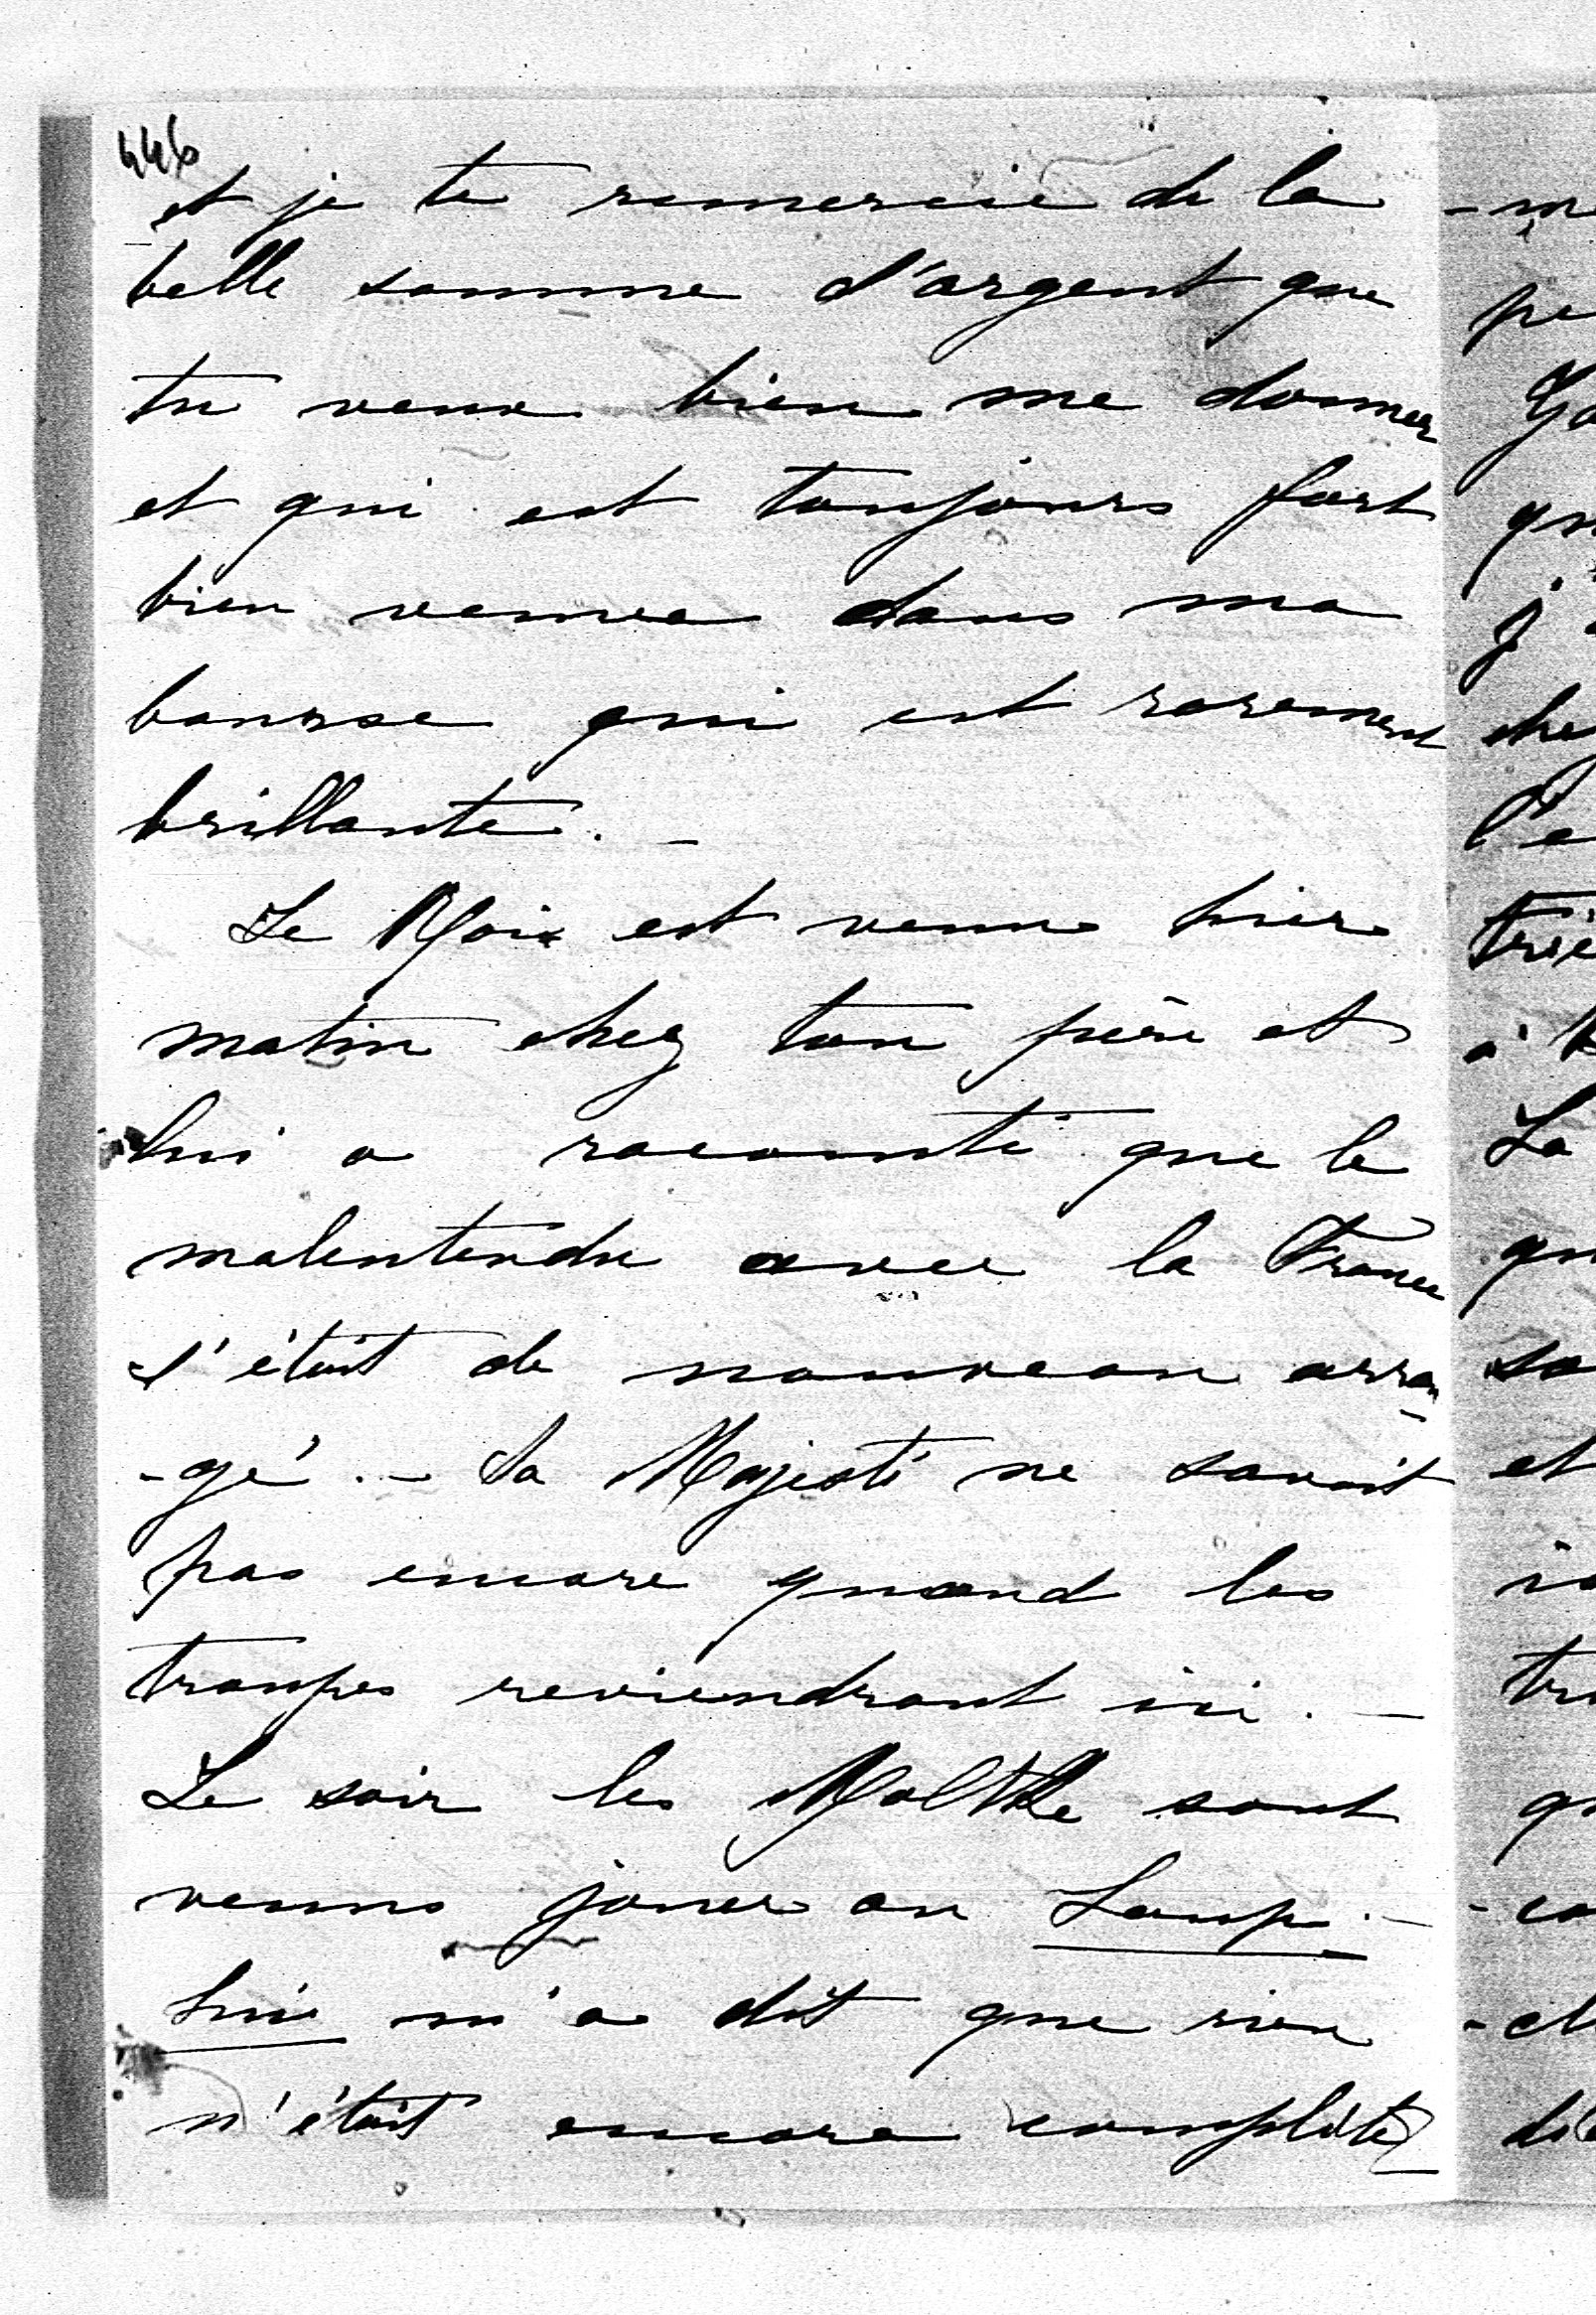 446
et je te remercie de la
belle somme d'argent que
tu veux bien me donner
et qui est toujours fort
bien venue dans ma
bourse qui est rarement
brillante. —
Le Roi est venu hier
matin chez ton père et
lui a raconté que le
malentendu avec la France
s'était de nouveau arran-
-gé. — Sa Majesté ne savait
pas encore quand les
troupes reviendront ici. —
Le soir les Moltke sont
venus jouer au Loup. —
Lui m'a dit que rien
n'était encore complète-